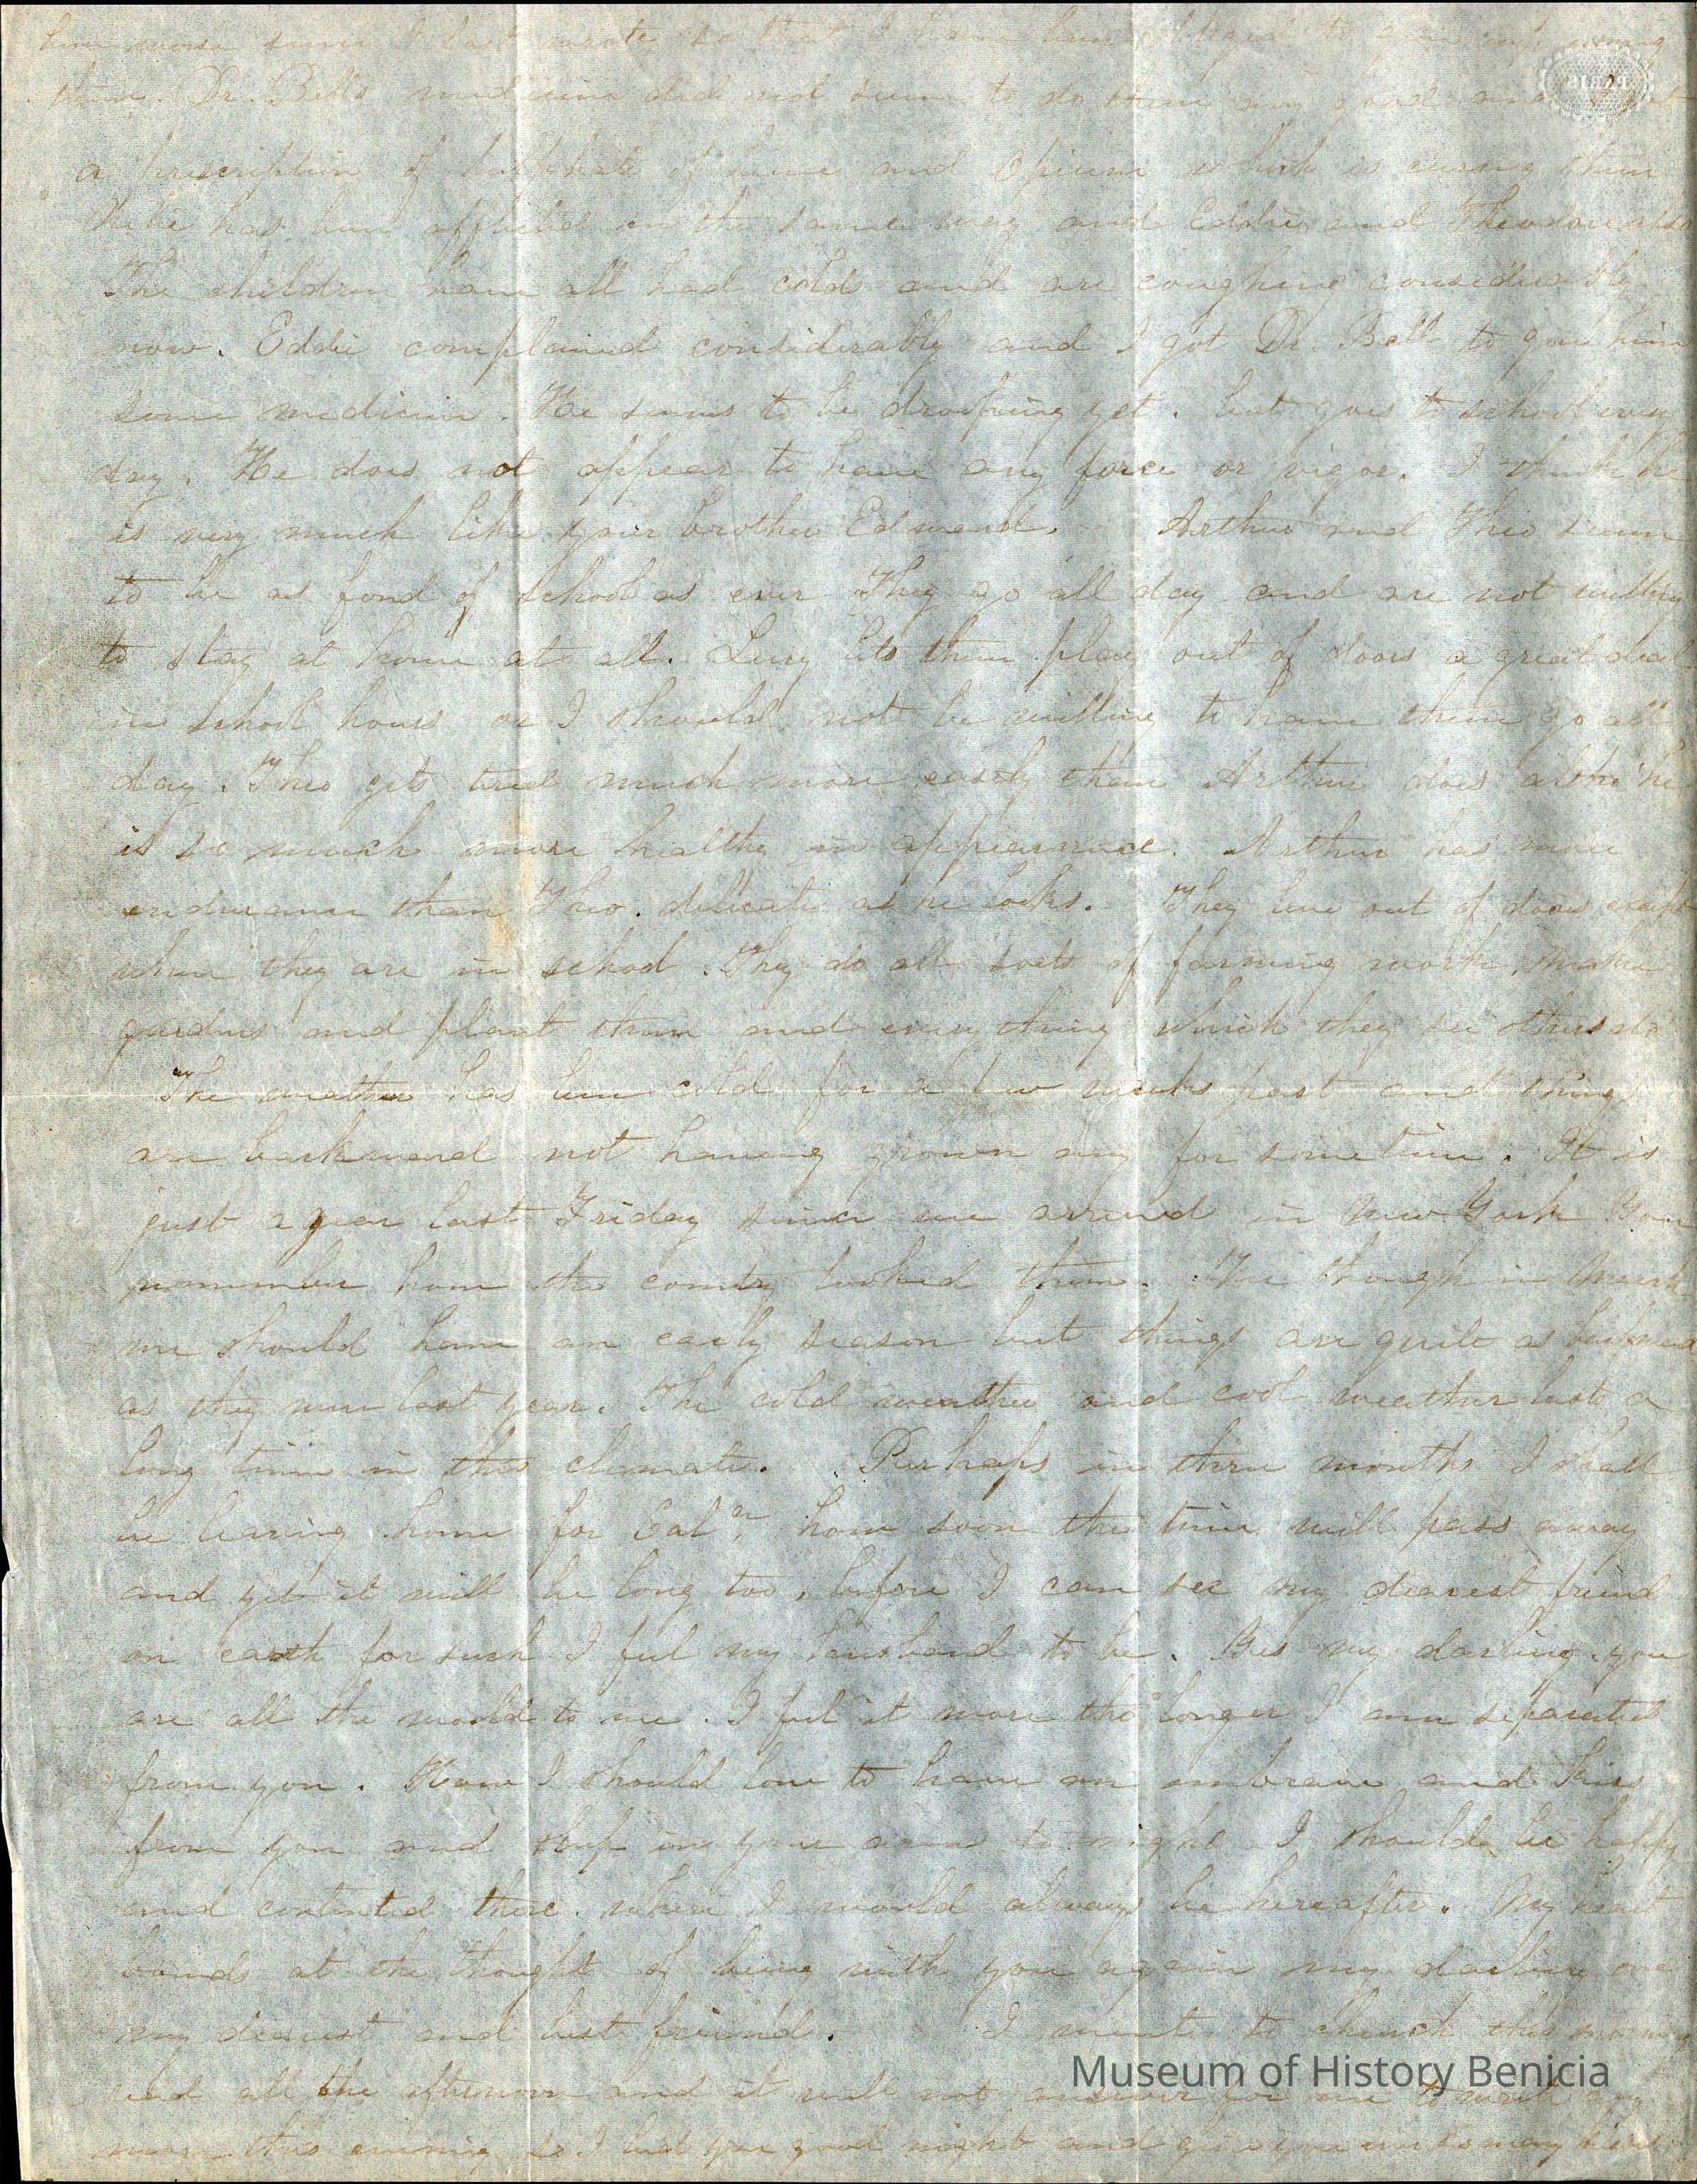 been worse since I last wrote so that I have been obliged to give up nursing
them. Dr. Bell's medicine did not seem to do them any good and I got
a prescription of sulphate of and Opium which is curing them
has been afflicted in the same way and Eddie and Theodore also
The children have all had colds and are coughing considerably
now. Eddie complained considerably and I got Dr. Bell to give him
some medicine. He seems to be drooping yet. but goes to school every
day. He does not appear to have any force or vigor. I think he
is very much like your brother Edmund. Arthur and Theo seem
to be as fond of school as ever They go all day and are not willing
to stay at home at all. Lucy lets them play out of doors a great deal
in school hours or I should not be willing to have them go all
day. Theo gets tired much more easily than Arthur does altho' he
is so much more healthy in appearance. Arthur has more
endurance than Theo. delicate as he looks. They live out of doors except
when they are in school. They do all sorts of farming work, make
gardens and plant them and every thing which they see others do
The weather has been cold for a few weeks past and things
are backward not having grown any for sometime. It is
just a year last Friday since we arrived in New York You
remember how the country looked then. We though in March
we should have an early season but things are quite as backward
as they were last year. The cold weather and cool weather lasts a
long time in this climate. Perhaps in three months I shall
be leaving home for Cal^n, how soon the time will pass away
and yet it will be long too, before I can see my dearest friend
on earth for such I feel my husband to be. Yes my darling you
are all the world to me. I feel it more the longer I am separated
from you. How I should love to have an embrace and kiss
from you and sleep in your arms to night I should be happy
and contented there. where I would always be hereafter. My heart
bounds at the thought of being with you again my darling one
my dearest and best friend. I went to church this morning
and all the afternoon and it will not answer for me to write any
more this evening so I bid you good night and give you ever so many kisses
Museum of History Benicia